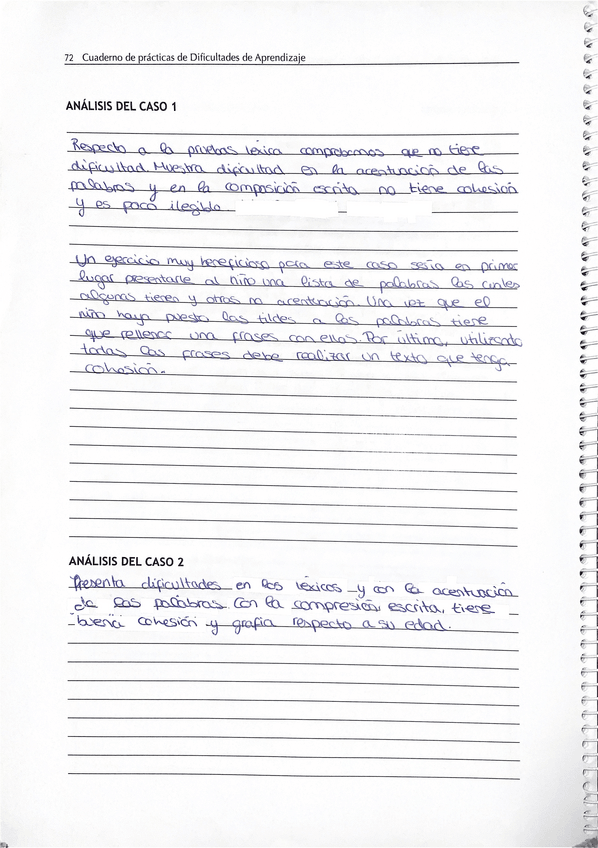 72 Cuaderno de prácticas de Dificultades de Aprendizaje
ANÁLISIS DEL CASO 1
Respecto a la pruebas léxica comprobamos que no tiene
dificultad. Muestra dificultad en la acentuación de las
palabras y en la composición escrita no tiene cohesión
y es poco ilegible
Un ejercicio muy beneficioso para este caso sería en primer
lugar presentarle al niño una lista de palabras las cuales
algunas tienen y otras no acentuación. Una vez que el
niño haya puesto las tildes a las palabras tiene
que rellenar una frases con ellas. Por último, utilizando
todas las frases debe realizar un texto que tenga
cohesión.
ANÁLISIS DEL CASO 2
Presenta dificultades en los léxicos y con la acentuación
de las palabras. Con la compresión escrita, tiene
buena cohesión y grafía respecto a su edad.